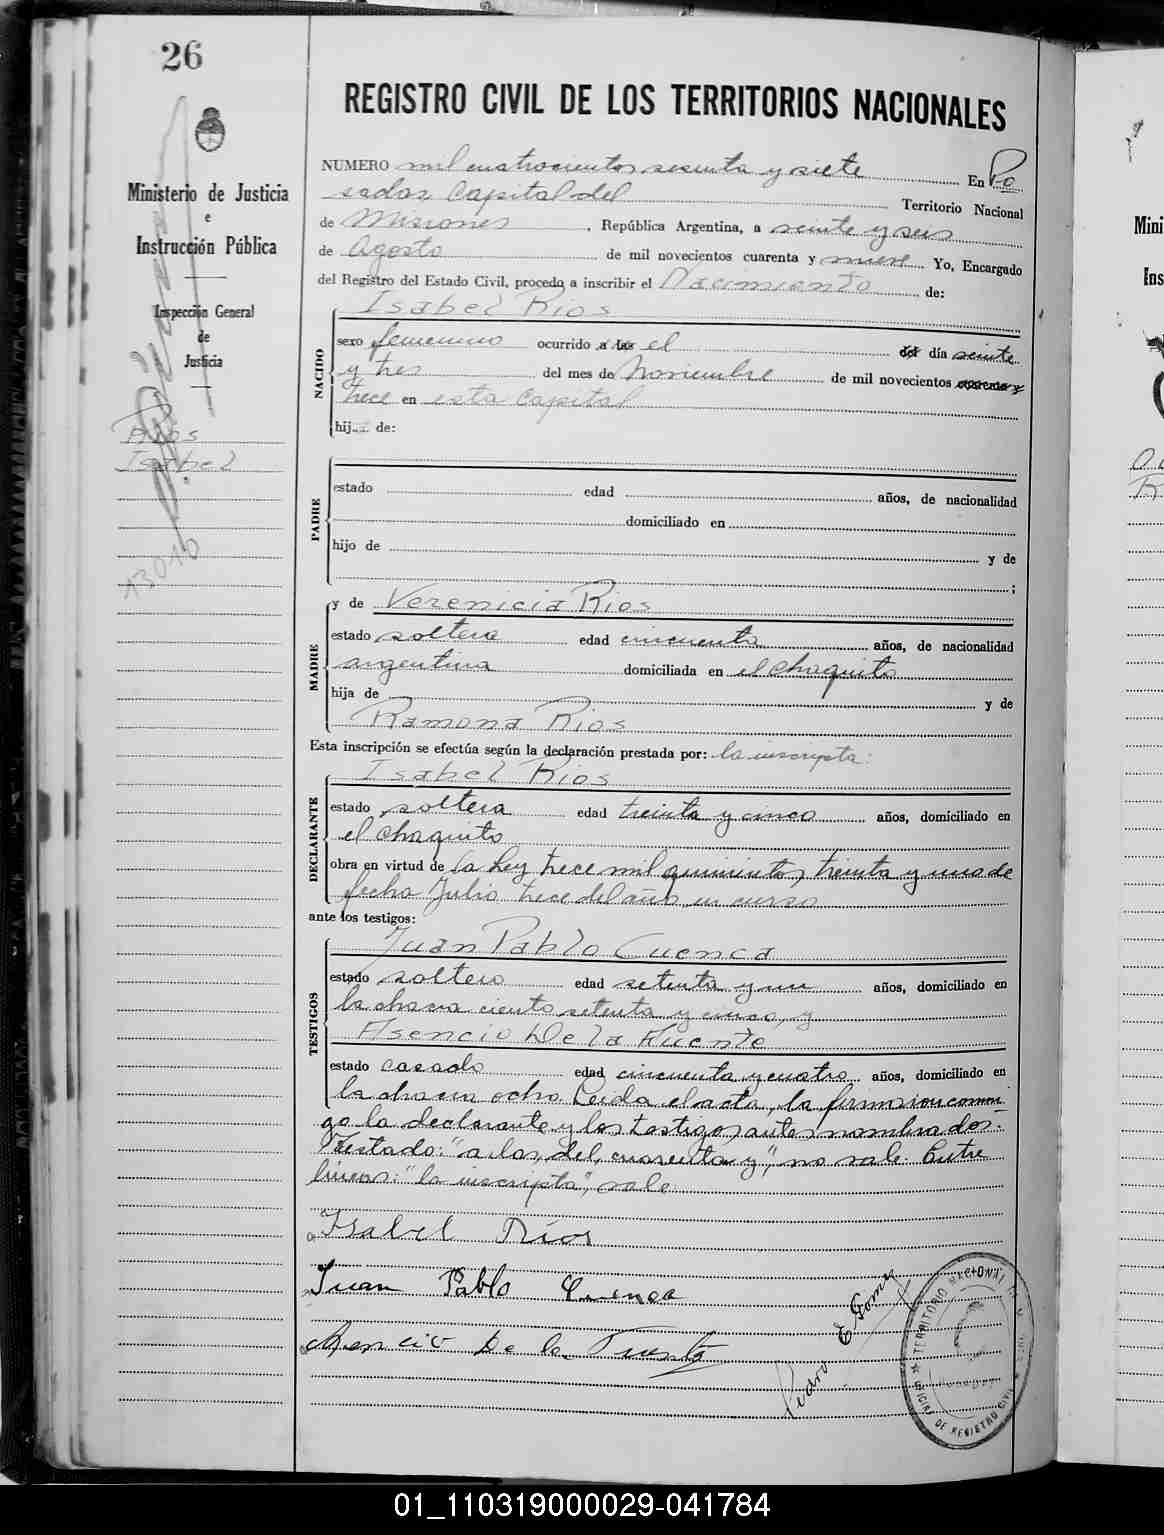 26
Ministerio de Justicia
e
Instrucción Pública
Inspección General
de
Justicia
Rios
Isabel
13010
REGISTRO CIVIL DE LOS TERRITORIOS NACIONALES
NUMERO mil cuatrocientos sesenta y siete En Po
sadas Capital del Territorio Nacional
de Misiones, República Argentina, a veinte y seis
de Agosto de mil novecientos cuarenta y nueve Yo, Encargado
del Registro del Estado Civil, procedo a inscribir el Nacimiento de:
NACIDO
Isabel Rios
sexo femenino ocurrido a las el del día veinte
y tres del mes de Noviembre de mil novecientos cuarenta y
trece en esta Capital
hija de:
PADRE
estado edad años, de nacionalidad
domiciliado en
hijo de y de
;
MADRE
y de Verenicia Rios
estado soltera edad cincuenta años, de nacionalidad
argentina domiciliada en el Chaquito
hija de y de
Ramona Rios
Esta inscripción se efectúa según la declaración prestada por: la inscripta:
DECLARANTE
Isabel Rios
estado soltera edad treinta y cinco años, domiciliado en
el Chaquito
obra en virtud de la Ley trece mil quinientos treinta y uno de
fecha Julio trece del año en curso
ante los testigos:
TESTIGOS
Juan Pablo Cuenca
estado soltero edad setenta y un años, domiciliado en
la chacra ciento setenta y cinco, y
Asencio De la Fuente
estado casado edad cincuenta y cuatro años, domiciliado en
la chacra ocho Leida el acta, la firmaron conmi
go la declarante y los testigos antes nombrados.
Testado: "a las, del, cuarenta y", no vale. Entre
lineas: "la inscripta", vale
Isabel Ríos
Juan Pablo Cuenca
Asencio De la Fuente
Pedro E Gomez
TERRITORIO NACIONAL DE
OFICINA DE REGISTRO CIVIL
01_110319000029-041784